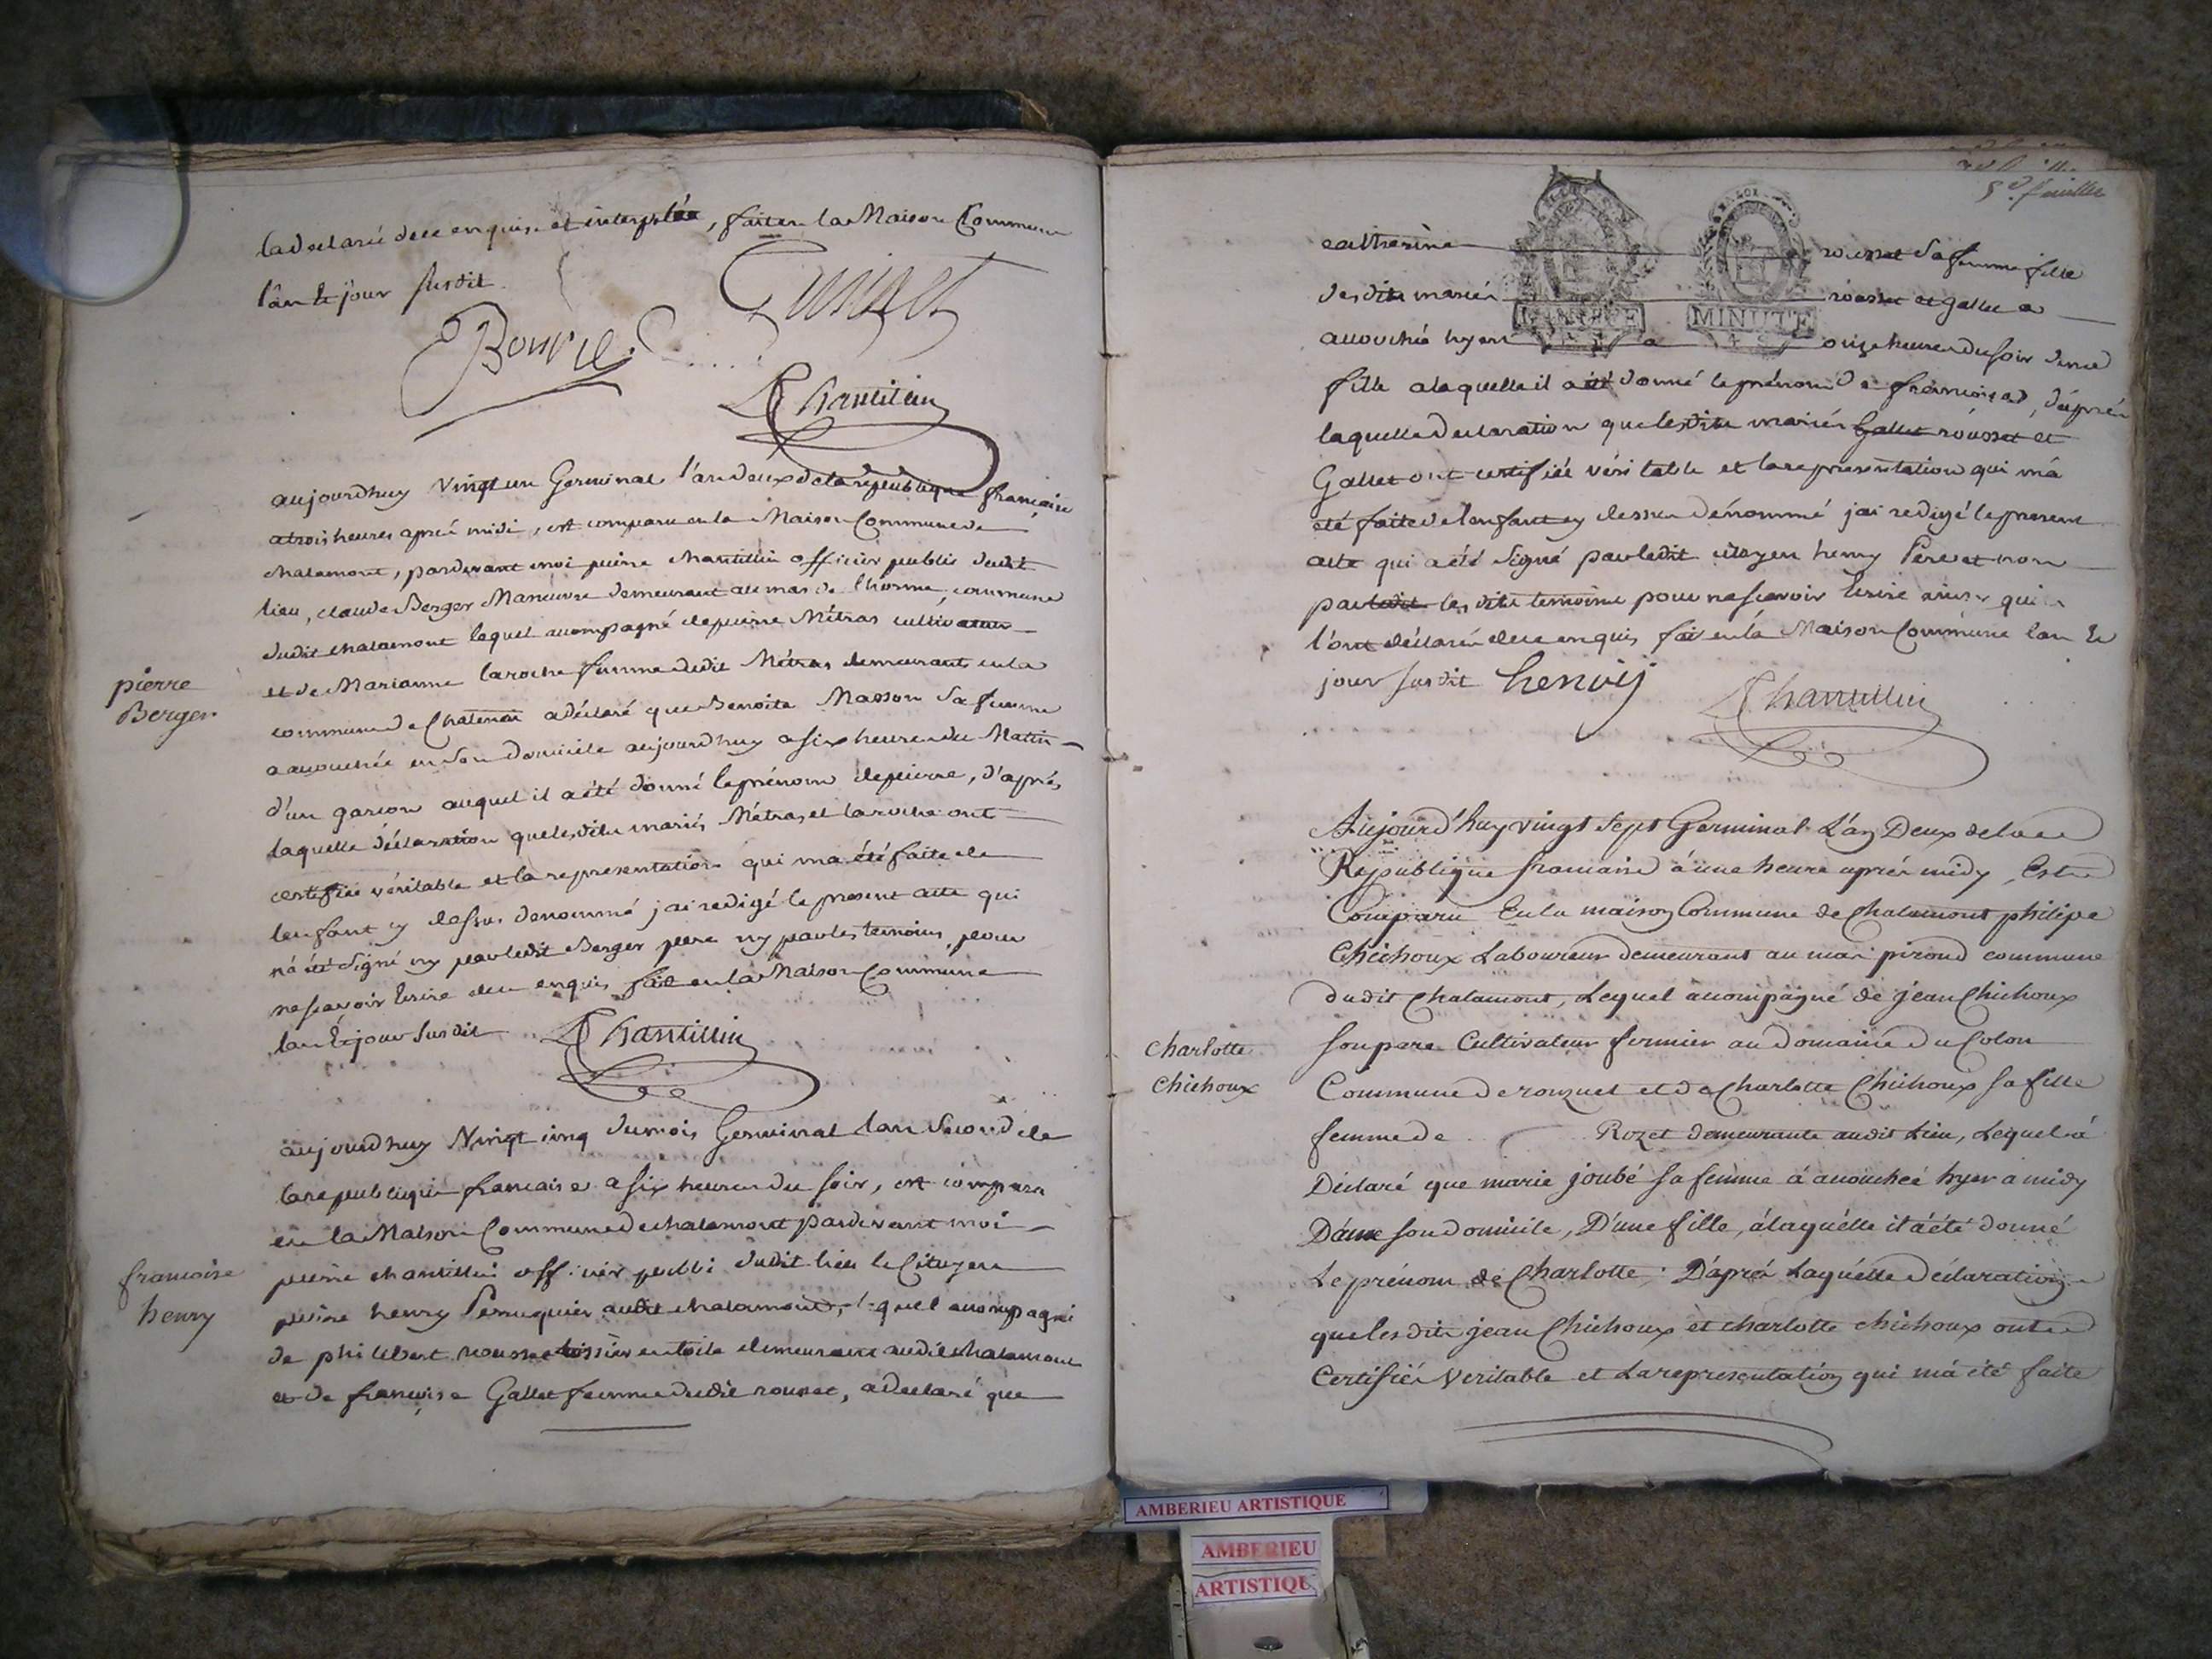 la declaré dece enquise et interpelée, fait en la Maison Commune
l'an & jour susdit
Guinet
Bouvie
P Chantillin
aujourdhuy vingt un Germinal l'an deux de la republique francaise
a trois heures aprés midi, est comparu en la Maison Commune de
chalamont, pardevant moi pierre chantillin officier public dudit
lieu, claude Berger Maneuvre demeurant au mas de lhorme, commune
dudit chalamont lequel acompagné de pierre Métras cultivateur
et de Marianne laroche femme dudit Métras demeurants en la
commune de Chatenai a déclaré que Benoite Masson sa femme
a accouchée en son domicile aujourdhuy a six heures du Matin
d'un garcon auquel il a été donné le prénom de pierre, d'aprés
laquelle déclaration que lesdits mariés Métras et laroche ont
certifiée véritable et la representation qui ma été faite de
lenfant cy dessus denommé jai redigé le present acte qui
n'a été signé ny par ledit Berger pere ny par les temoins, pour
ne scavoir Ecrire dece enquis fait en la Maison Commune
lan & jour susdit P Chantillin
pierre
Berger
aujourdhuy Vingt cinq du mois Germinal lan Second de
la republique francaise a six heures du soir, est comparu
en la Maison Commune de chalamont pardevant moi
pierre chantillin officier public dudit lieu le Citoyen
pierre henry Perruquier audit chalamont, lequel acompagné
de philibert rousset tissier en toile demeurant audit chalamont
et de francoise Gallet femme dudit rousset, a declaré que
francoise
henry
5e feuillet
catherine rousset sa femme fille
desdits mariés rousset et gallet a
accouchée hyer a onze heures du soir dune
fille a laquelle il a été donné le prénom de francoise, d'aprés
laquelle declaration que lesdits mariés Gallet rousset et
Gallet ont certifiée véritable et la representation qui m'a
été faite de lenfant cy dessus dénommé jai redigé le present
acte qui a été signé par ledit citoyen henry Pere et non
par ledit les dits temoins pour ne scavoir Ecrire ainsy qu'ils
l'ont déclaré dece enquis, fait en la Maison Commune lan &
jour susdit henry
P Chantillin
MINUTE
MINUTE
Aujourd'huy vingt sept Germinal L'an Deux de la
Republique francaise à une heure aprés midy, Est
Comparu En la maison Commune de Chalamont philipe
Chichoux Laboureur demeurant au mas piroud commune
dudit Chalamont, Lequel acompagné de jean Chichoux
son pere Cultivateur fermier au Domaine Du Colon
Commune de ronzuel et de Charlotte Chichoux sa fille
femme de Rozet demeurante audit Lieu, Lequel a
Déclaré que marie joubé sa femme à accouchée hyer a midy
Dans son domicile, D'une fille, à laquélle il a été donné
Le prénom de Charlotte. D'aprés Laquélle Déclaration
que les dits jean Chichoux et charlotte chichoux ont
Certifiée Veritable et La representation qui m'a été faite
Charlotte
Chichoux
AMBERIEU ARTISTIQUE
AMBERIEU
ARTISTIQUE